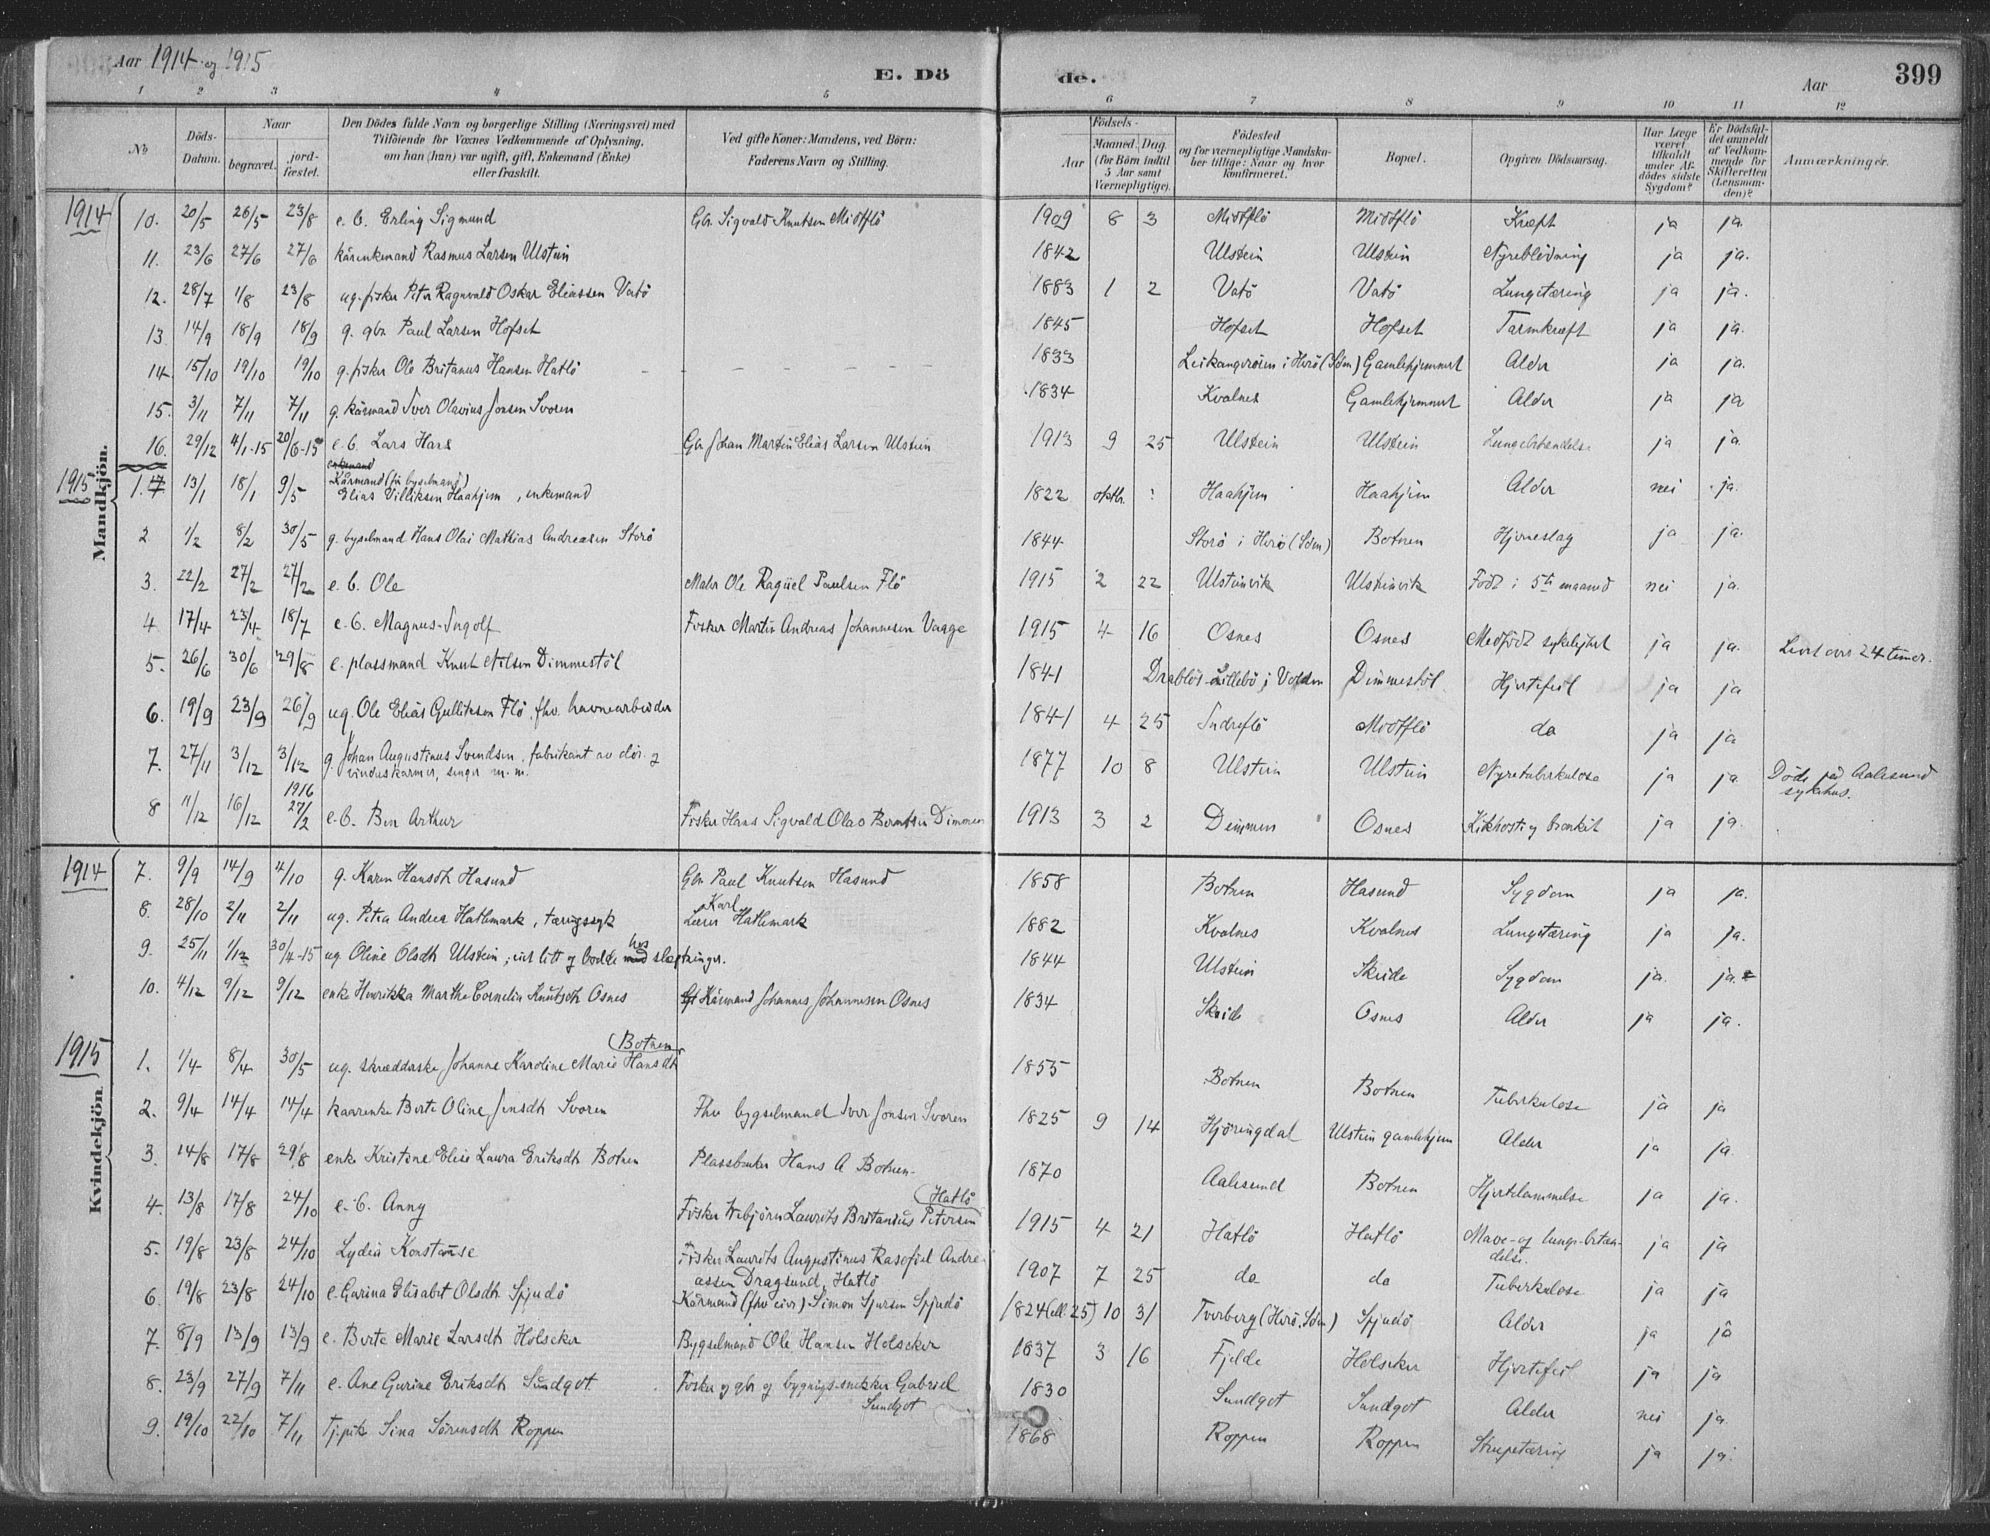 Aar 1914 og 1915
E. Dö
de.
Aar
399
1 2 3 4 5 6 7 8 9 10 11 12
No
Döds-Datum.
Naar
begravet.
jord-fæstet.
Den Dödes fulde Navn og borgerlige Stilling (Næringsvei) med
Tilföiende for Voxnes Vedkommende af Oplysning,
om han (hun) var ugift, gift, Enkemand (Enke)
eller fraskilt.
Ved gifte Koner: Mandens, ved Börn:
Faderens Navn og Stilling.
Födsels-
Aar
Maaned. Dag.
(for Börn indtil
5 Aar samt
Værnepligtige).
Födested
og for værnepligtige Mandska-
ber tillige: Naar og hvor
konfirmeret.
Bopæl.
Opgiven Dödsaarsag.
Har Læge
været
tilkaldt
under Af-
dödes sidste
Sygdom?
Er Dödsfal-
det anmeldt
af Vedkom-
mende for
Skifteretten
(Lensman-
den)?
Anmærkninger.
Mandkjön.
1914
10. 20/5 26/5 23/8 e. b. Erling Sigmund Gbr. Sigvald Knutsen Midtflö 1909 8 3 Midtflö Midtflö Kræft ja ja.
11. 23/6 27/6 27/6 kårenkemand Rasmus Larsen Ulstein 1842 Ulstein Ulstein Nyreblödning ja ja.
12. 28/7 1/8 23/8 ug. fisker Peter Ragnvald Oskar Eliassen Vatö 1883 1 2 Vatö Vatö Lungetæring ja ja.
13. 14/9 18/9 18/9 g. gbr. Paul Larsen Hofset 1845 Hofset Hofset Tarmkræft ja ja.
14. 15/10 19/10 19/10 g. fisker Ole Britanus Hansen Hatlö 1833 Leikangerösen i Herö (Sdm) Gamlehjemmet Alder ja ja.
15. 3/11 7/11 7/11 g. kårmand Iver Olavius Jonsen Svoren 1834 Kvalnes Gamlehjemmet Alder ja ja
16. 29/12 4/1-15 20/6-15 e. b. Lars Hans Gbr Johan Martin Elias Larsen Ulstein 1913 9 25 Ulstein Ulstein Lungebetændelse ja ja.
1915
enkemand
Kårmand (før byselmand)
1. 13/1 18/1 9/5 Elias Villiksen Haahjem, enkemand 1822 oktbr. ? Haahjem Haahjem Alder nei ja.
2 1/2 8/2 30/5 g. byselmand Hans Olai Mathias Andreasen Storö 1844 Storö i Herö (Sdm) Botnen Hjerneslag ja ja.
3. 22/2 27/2 27/2 e. b. Ole Maler Ole Raguel Paulsen Flö 1915 2 22 Ulsteinvik Ulsteinvik Född i 5te maaned nei ja.
4 17/4 23/4 18/7 e. b. Magnus Ingolf Fisker Martin Andreas Johannesen Vaage 1915 4 16 Osnes Osnes Medfödt sykelighet ja ja. Levet over 24 timer.
5. 26/6 30/6 29/8 e. plassmand Knut Nilsen Dimmestöl 1841 Drablös-Lillebö i Volden Dimmestöl Hjertefeil ja ja
6. 19/9 23/9 26/9 ug. Ole Elias Gulliksen Flö, fhv. havnearbeider 1841 4 25 Indreflö Midtflö do ja ja
7. 27/11 3/12 3/12 g. Johan Augustinus Svendsen, fabrikant av dör- og
vindueskarmer, senger m. m. 1877 10 8 Ulstein Ulstein Nyretuberkulose ja ja Döde på Aalesund
sykehus.
8 11/12 16/12 1916 27/2 e. b. Ben Arthur Fisker Hans Sigvald Olao Berntsen Dimmen 1913 3 2 Dimmen Osnes Kikhoste og bronkit ja ja.
Kvindekjön
1914
7. 9/9 14/9 4/10 g. Karen Hansdtr Hasund Gbr Paul Knutsen Hasund 1858 Botnen Hasund Sygdom ja ja.
8. 28/10 2/11 2/11 ug. Petra Andrea Hatlemark, tæringssyk Lærer Karl Hatlemark 1882 Kvalnes Kvalnes Lungetæring ja ja.
9. 25/11 1/12 30/4-15 ug Oline Olsdtr Ulstein; eiet litt og bodde hos slægtninger. 1844 Ulstein Skeide Sygdom ja. ja.
10. 4/12 9/12 9/12 enke Henrikka Marthe Cornelia Knutsdtr Osnes Kårmand Johannes Johannesen Osnes 1834 Skeide Osnes Alder ja ja.
1915
1. 1/4 8/4 30/5 ug. skrædderske Johanne Karoline Marie Hansdtr (Botnen 1855 Botnen Botnen Tuberkulose ja ja
2. 9/4 14/4 14/4 kaarenke Berte Oline Jensdtr Svoren Fhv bygselmand Iver Jonsen Svoren 1825 9 14 Hjöringdal Ulstein gamlehjem Alder ja ja.
3. 14/8 17/8 29/8 enke Kristine Elise Laura Eriksdtr Botnen Plassbruker Hans A Botnen 1870 Aalesund Botnen Hjertelammelse ja ja.
4. 13/8 17/8 24/10 e. b. Anny Fisker Webjörn Laurits Britanius Petersen (Hatlö 1915 4 21 Hatlö Hatlö Mave- og lunge-betæn-
delse. ja ja
5. 19/8 23/8 24/10 Lydia Konstanse Fisker Laurits Augustinus Rasofiel Andre-
assen Dragsund, Hatlö 1907 7 25 do do Tuberkulose ja ja
6. 19/8 23/8 24/10 e. Garina Elisabet Olsdtr Spjudö Kårmand (fhv eier) Simon Sjursen Spjudö 1824 (ell. 25) 10 31 Tverberg (Herö, Sdm) Spjudö Alder ja ja
7. 8/9 13/9 13/9 e. Berte Marie Larsdtr Holseker Bygselmand Ole Hansen Holseker 1837 3 16 Fjelde Holseker Hjertefeil ja ja
8. 23/9 27/9 7/11 e. Ane Gurine Eriksdtr Sundgot Fisker og gbr og bygnigs-snekker Gabriel
Sundgot 1830 Sundgot Sundgot Alder nei ja.
9. 19/10 22/10 7/11 Tj.pike Sina Sörensdtr Roppen 1868 Roppen Roppen Strupetæring ja ja